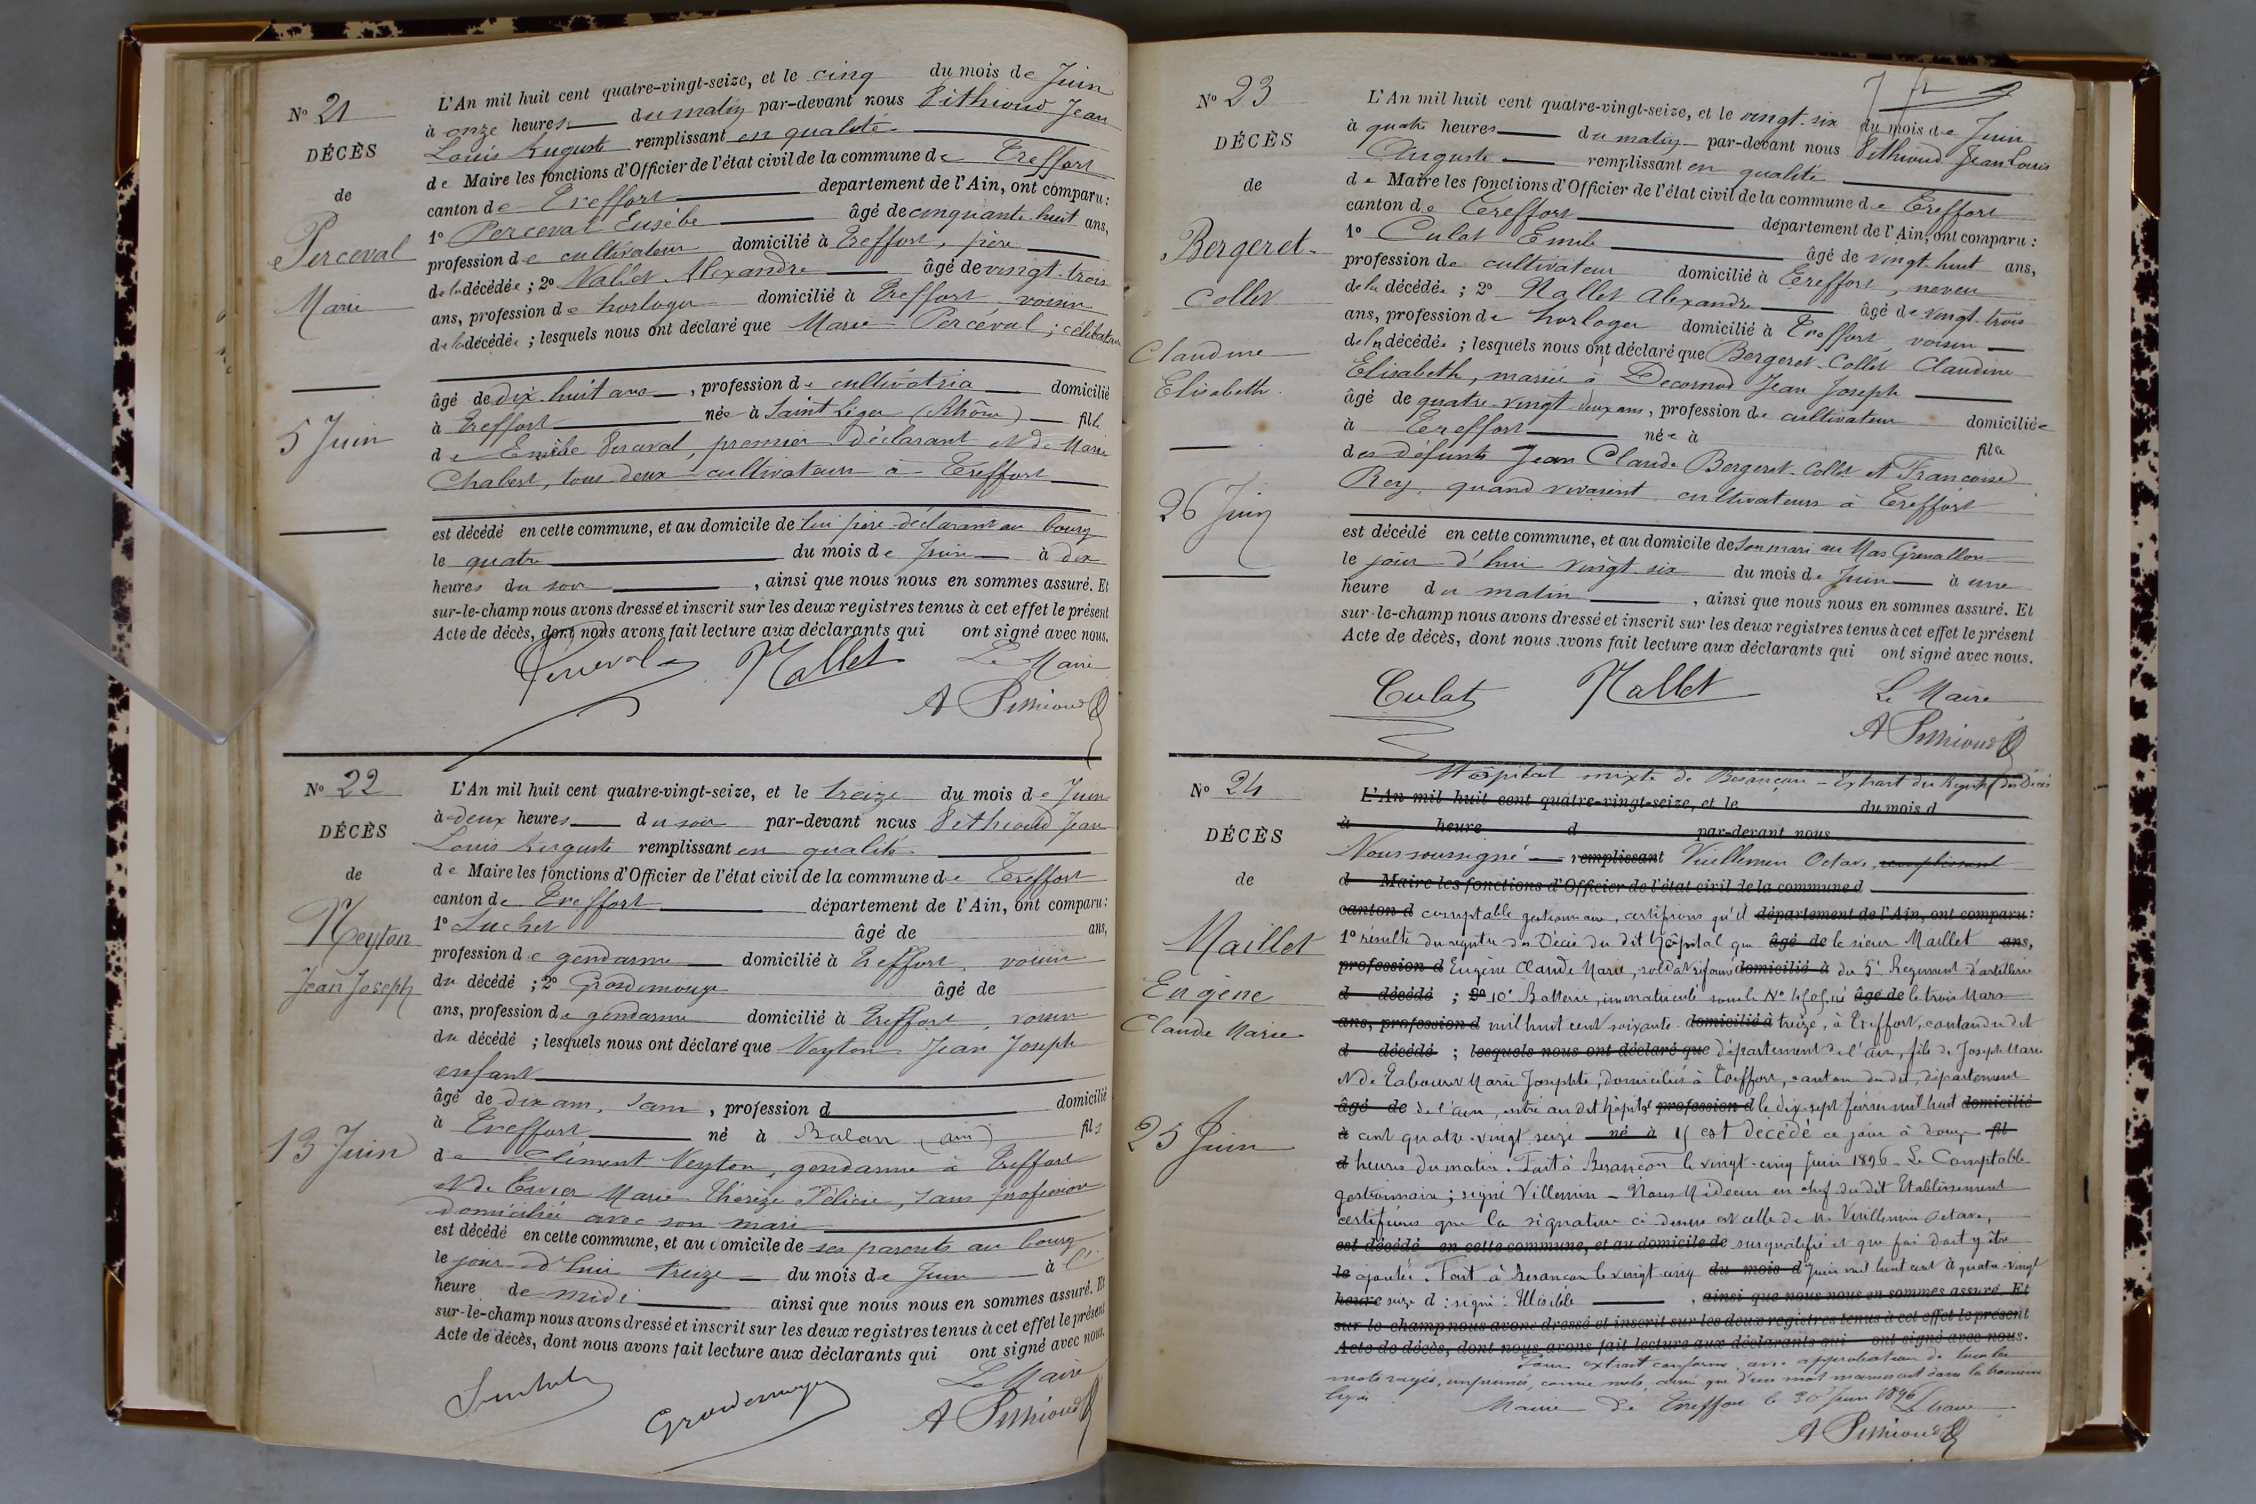 N° 21
DÉCÈS
de
Perceval
Marie
5 Juin
L'An mil huit cent quatre-vingt-seize, et le cinq du mois de Juin
à onze heures du matin par-devant nous Pithioud Jean
Louis Auguste remplissant en qualité
de Maire les fonctions d'Officier de l'état civil de la commune de Treffort
canton de Treffort département de l'Ain, ont comparu:
1° Perceval Eusèbe âgé de cinquante-huit ans,
profession de cultivateur domicilié à Treffort, père
de la décédée; 2° Nallet Alexandre âgé de vingt-trois
ans, profession de horloger domicilié à Treffort voisin
de la décédée; lesquels nous ont déclaré que Marie Percéval, célibataire
âgé de dix-huit ans, profession de cultivatrice domicilié
à Treffort née à Saint Léger (Rhône) fille
de Perceval, premier déclarant et de Marie
Chabert, tous deux cultivateurs à Treffort
est décédé en cette commune, et au domicile de lui père déclarant au bourg
le quatre du mois de Juin à dix
heures du soir, ainsi que nous nous en sommes assuré. Et
sur-le-champ nous avons dressé et inscrit sur les deux registres tenus à cet effet le présent
Acte de décès, dont nous avons fait lecture aux déclarants qui ont signé avec nous.
Perceval Nallet Le Maire
A Pithioud
N° 22
DÉCÈS
de
Neyton
Jean Joseph
13 Juin
L'An mil huit cent quatre-vingt-seize, et le treize du mois de Juin
à deux heures du soir par-devant nous Pithioud Jean
Louis Auguste remplissant en qualité
de Maire les fonctions d'Officier de l'état civil de la commune de Treffort
canton de Treffort département de l'Ain, ont comparu:
1° Luchet âgé de ans,
profession de gendarme domicilié à Treffort, voisin
du décédé; 2° Grosdemouge âgé de
ans, profession de gendarme domicilié à Treffort, voisin
du décédé; lesquels nous ont déclaré que Neyton Jean Joseph
enfant
âgé de dix ans, sans, profession d domicilié
à Treffort né à Balan (ain) fils
de Clément Neyton, gendarme à Treffort
et de Marie Thérèze Félicie, sans profession
domiciliée avec son mari
est décédé en cette commune, et au domicile de ses parents au bourg
le jour d'hui treize du mois de Juin à l'
heure de midi ainsi que nous nous en sommes assuré. Et
sur-le-champ nous avons dressé et inscrit sur les deux registres tenus à cet effet le présent
Acte de décès, dont nous avons fait lecture aux déclarants qui ont signé avec nous.
Le Maire
Grosdemouge A Pithioud
N° 23
DÉCÈS
de
Bergeret-
Collet
Claudine
Elisabeth.
26 Juin
L'An mil huit cent quatre-vingt-seize, et le vingt-six du mois de Juin
à quatre heures du matin par-devant nous Pithioud Jean Louis
Auguste remplissant en qualité
de Maire les fonctions d'Officier de l'état civil de la commune de Treffort
canton de Treffort département de l'Ain, ont comparu:
1° Culat Emile âgé de vingt-huit ans,
profession de cultivateur domicilié à Treffort, neveu
de la décédée; 2° Nallet Alexandre âgé de vingt-trois
ans, profession de horloger domicilié à Treffort, voisin
de la décédée; lesquels nous ont déclaré que Bergeret-Collet Claudine
Elisabeth, mariée à Decornod Jean Joseph
âgé de quatre-vingt deux ans, profession de cultivateur domiciliée
à Treffort née à fille
des défunts Jean Claude Bergeret-Collet et Francoise
Rey, quand vivaient cultivateurs à Treffort
est décédé en cette commune, et au domicile de son mari au Mas Grenallon
le jour d'hui vingt-six du mois de Juin à une
heure du matin, ainsi que nous nous en sommes assuré. Et
sur-le-champ nous avons dressé et inscrit sur les deux registres tenus à cet effet le présent
Acte de décès, dont nous avons fait lecture aux déclarants qui ont signé avec nous.
Culat Nallet Le Maire
A Pithioud
N° 24
DÉCÈS
de
Maillet
Eugène
Claude Marie
25 Juin
Hôpital mixte de Besançon - Extrait du Registre des Décès
L'An mil huit cent quatre-vingt-seize, et le du mois d
à heure d par-devant nous
Nous soussigné remplissant Vuillemin Octave, remplissant
d Maire les fonctions d'Officier de l'état civil de la commune d
canton d comptable gestionnaire, certifions qu'il département de l'Ain, ont comparu:
1° résulte du registre des Décès du dit hôpital que âgé de le sieur Maillet ans,
profession d Eugène Claude Marie, soldat réformé domicilié à du 5e Régiment d'artillerie
d décédé; 2° 10e Batterie, immatriculé sous le N° né âgé de le trois Mars
ans, profession d mil huit cent soixante domicilié à treize, à Treffort, canton du dit
d décédé; lesquels nous ont déclaré que département de l'ain, fils de Joseph Marie
et de Marie Josephte, domiciliés à Treffort, canton du dit, département
âgé de de l'ain, entré au dit hôpital profession d le dix-sept mil huit domicilié
à cent quatre-vingt seize né à y est décédé ce jour à douze fil
d heures du matin. Fait à Besançon le vingt-cinq Juin 1896. Le Comptable
gestionnaire; signé Villemin - Nous Médecin en chef du dit Etablissement
certifions que la signature ci dessus est celle de Mr Vuillemin Octave,
est décédé en cette commune, et au domicile de susqualifié et que foi doit y être
le ajoutée. Fait à Besançon le vingt cinq du mois d Juin mil huit cent à quatre-vingt
heure seize d: signé: Illisible, ainsi que nous nous en sommes assuré. Et
sur-le-champ nous avons dressé et inscrit sur les deux registres tenus à cet effet le présent
Acte de décès, dont nous avons fait lecture aux déclarants qui ont signé avec nous.
Pour extrait conforme, avec approbation de
mots rayés, imprimés, comme nuls, ainsi que d'un mot manuscrit dans la troisième
ligne Mairie de Treffort le 30 Juin 1896 Le Maire
A Pithioud